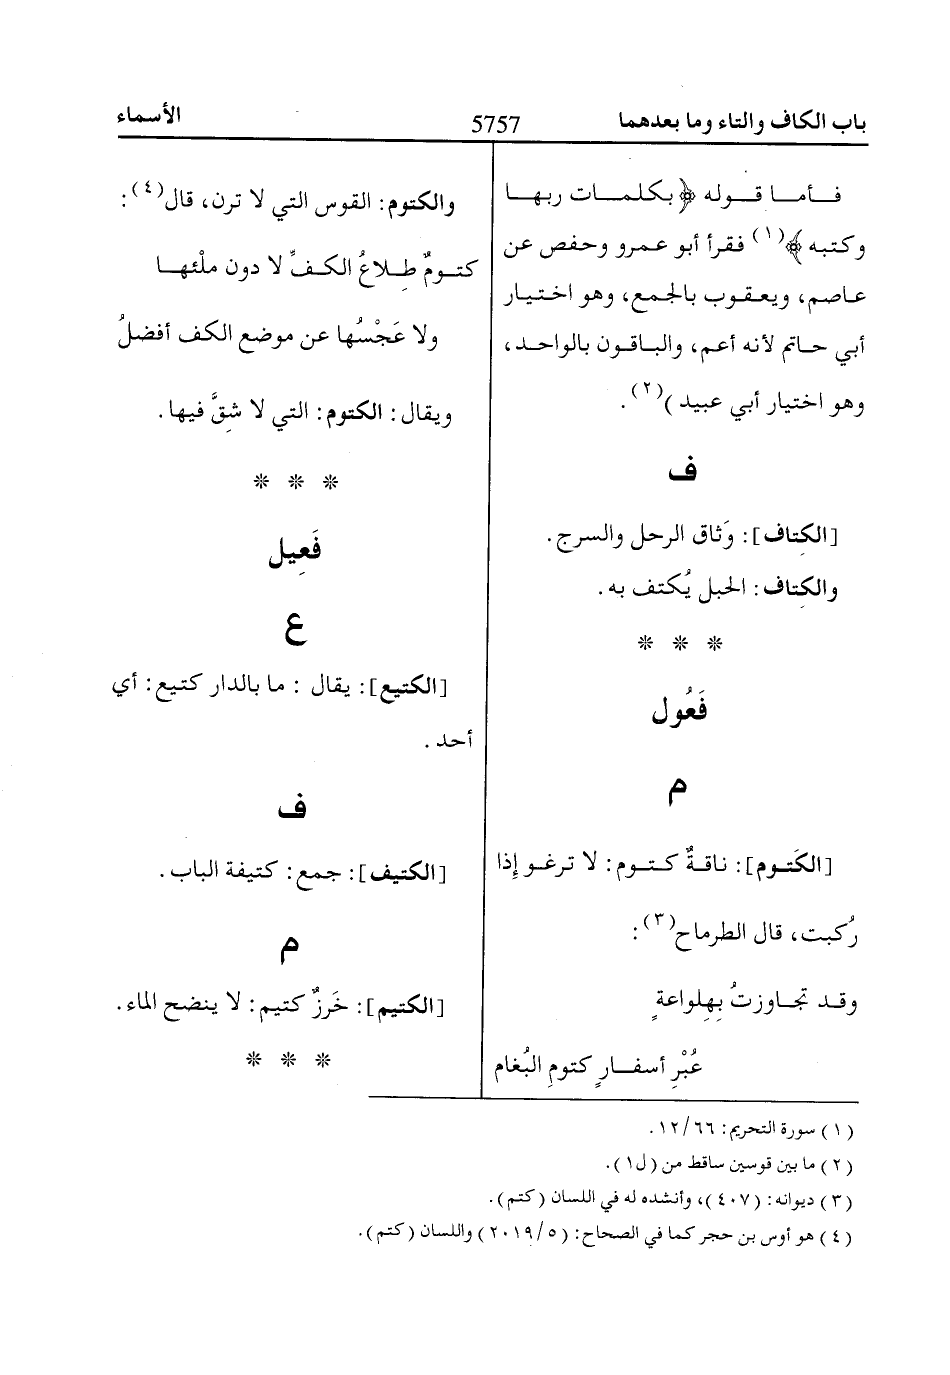 باب الكاف والتاء وما بعدهما 5757 الأسماء
فـأمـا قـولـه ﴿بكلمـات ربهـا
وكتبه﴾(١) فقرأ أبو عمرو وحفص عن
عاصم، ويعقوب بالجمع، وهو اختيار
أبي حاتم لأنه أعم، والباقون بالواحد،
وهو اختيار أبي عبيد )(٢).
ف
[الكِتاف]: وَثاق الرحل والسرج.
والكِتاف: الحبل يُكتف به.
* * *
فَعُول
م
[الكَتوم]: ناقةٌ كتوم: لا ترغو إِذا
رُكبت، قال الطرماح(٣):
وقد تجاوزتُ بِهِلواعةٍ
عُبْرِ أسفـارٍ كتومِ البُغام
والكتوم: القوس التي لا ترن، قال(٤):
كتومٌ طِلاعُ الكفِّ لا دون ملْئها
ولا عَجْسُها عن موضع الكف أفضلُ
ويقال: الكتوم: التي لا شِقَّ فيها.
* * *
فَعِيل
ع
[الكتيع]: يقال : ما بالدار كتيع: أي
أحد.
ف
[الكتيف]: جمع: كتيفة الباب.
م
[الكتيم]: خَرزٌ كتيم: لا ينضح الماء.
* * *
(١) سورة التحريم: ٦٦/ ١٢.
(٢) ما بين قوسين ساقط من (ل١).
(٣) ديوانه: (٤٠٧)، وأنشده له في اللسان (كتم).
(٤) هو أوس بن حجر كما في الصحاح: (٥/ ٢٠١٩) واللسان (كتم).